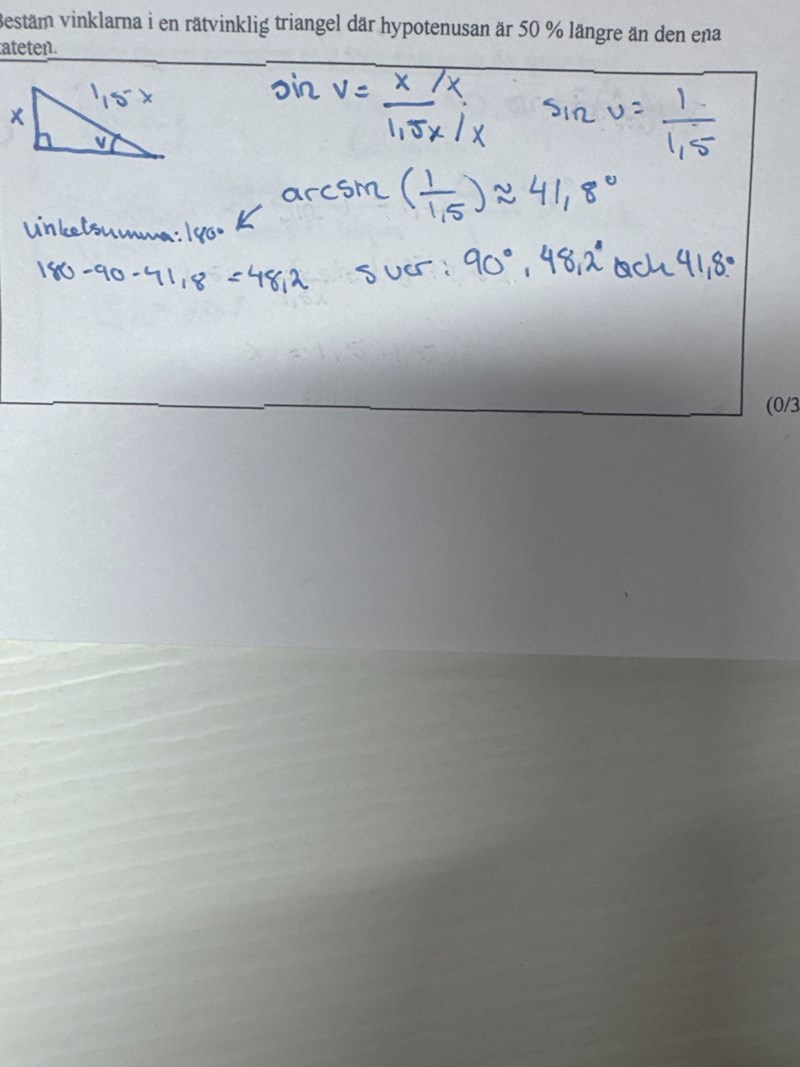 Bestäm vinklarna i en rätvinklig triangel där hypotenusan är 50 % längre än den ena
kateten.
x 1,5x v
sin v = x /x / 1,5x /x
sin v = 1 / 1,5
arcsin (1/1,5) ≈ 41,8°
vinkelsumma: 180°
180-90-41,8 = 48,2 svar: 90°, 48,2° och 41,8°
(0/3